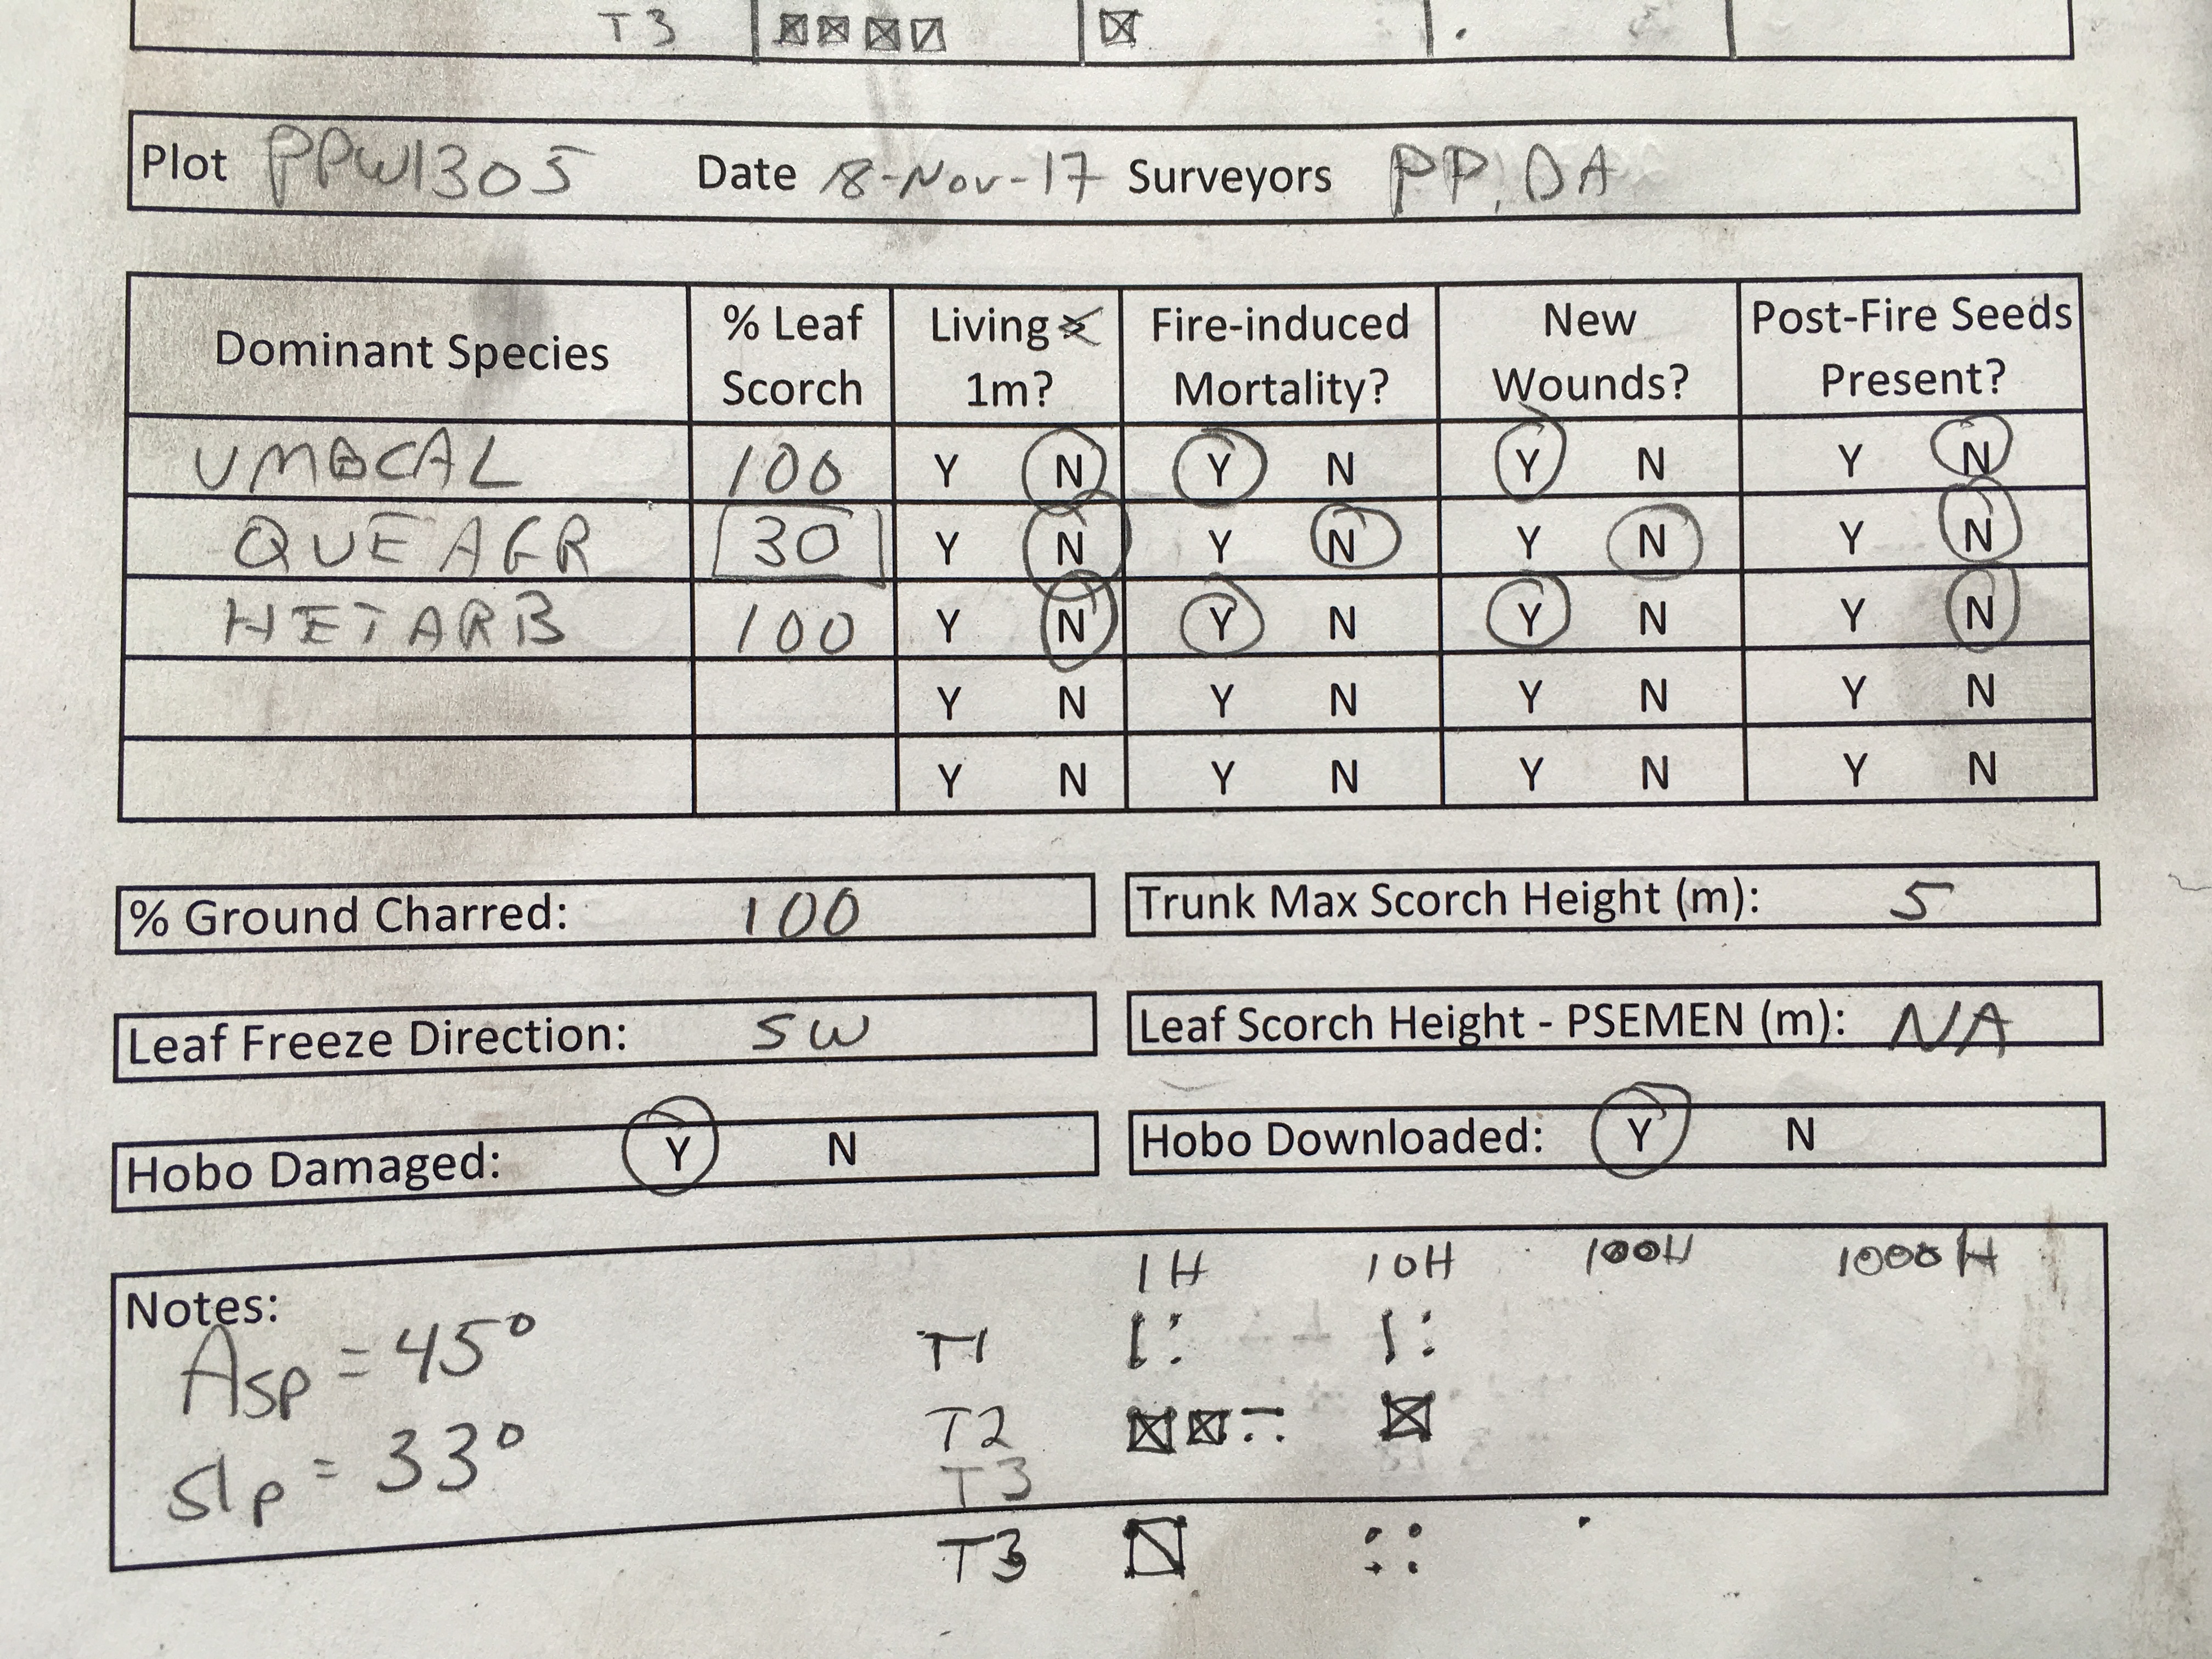 T3
Plot PPW1305 Date 18-Nov-17 Surveyors PP, DA
Dominant Species % Leaf Scorch Living < 1m? Fire-induced Mortality? New Wounds? Post-Fire Seeds Present?
UMBCAL 100 Y N Y N Y N Y N
QUEAGR 30 Y N Y N Y N Y N
HETARB 100 Y N Y N Y N Y N
Y N Y N Y N Y N
Y N Y N Y N Y N
% Ground Charred: 100 Trunk Max Scorch Height (m): 5
Leaf Freeze Direction: SW Leaf Scorch Height - PSEMEN (m): N/A
Hobo Damaged: Y N Hobo Downloaded: Y N
Notes: 1H 10H 100H 1000H
Asp = 45° T1
Slp = 33° T2
T3
T3